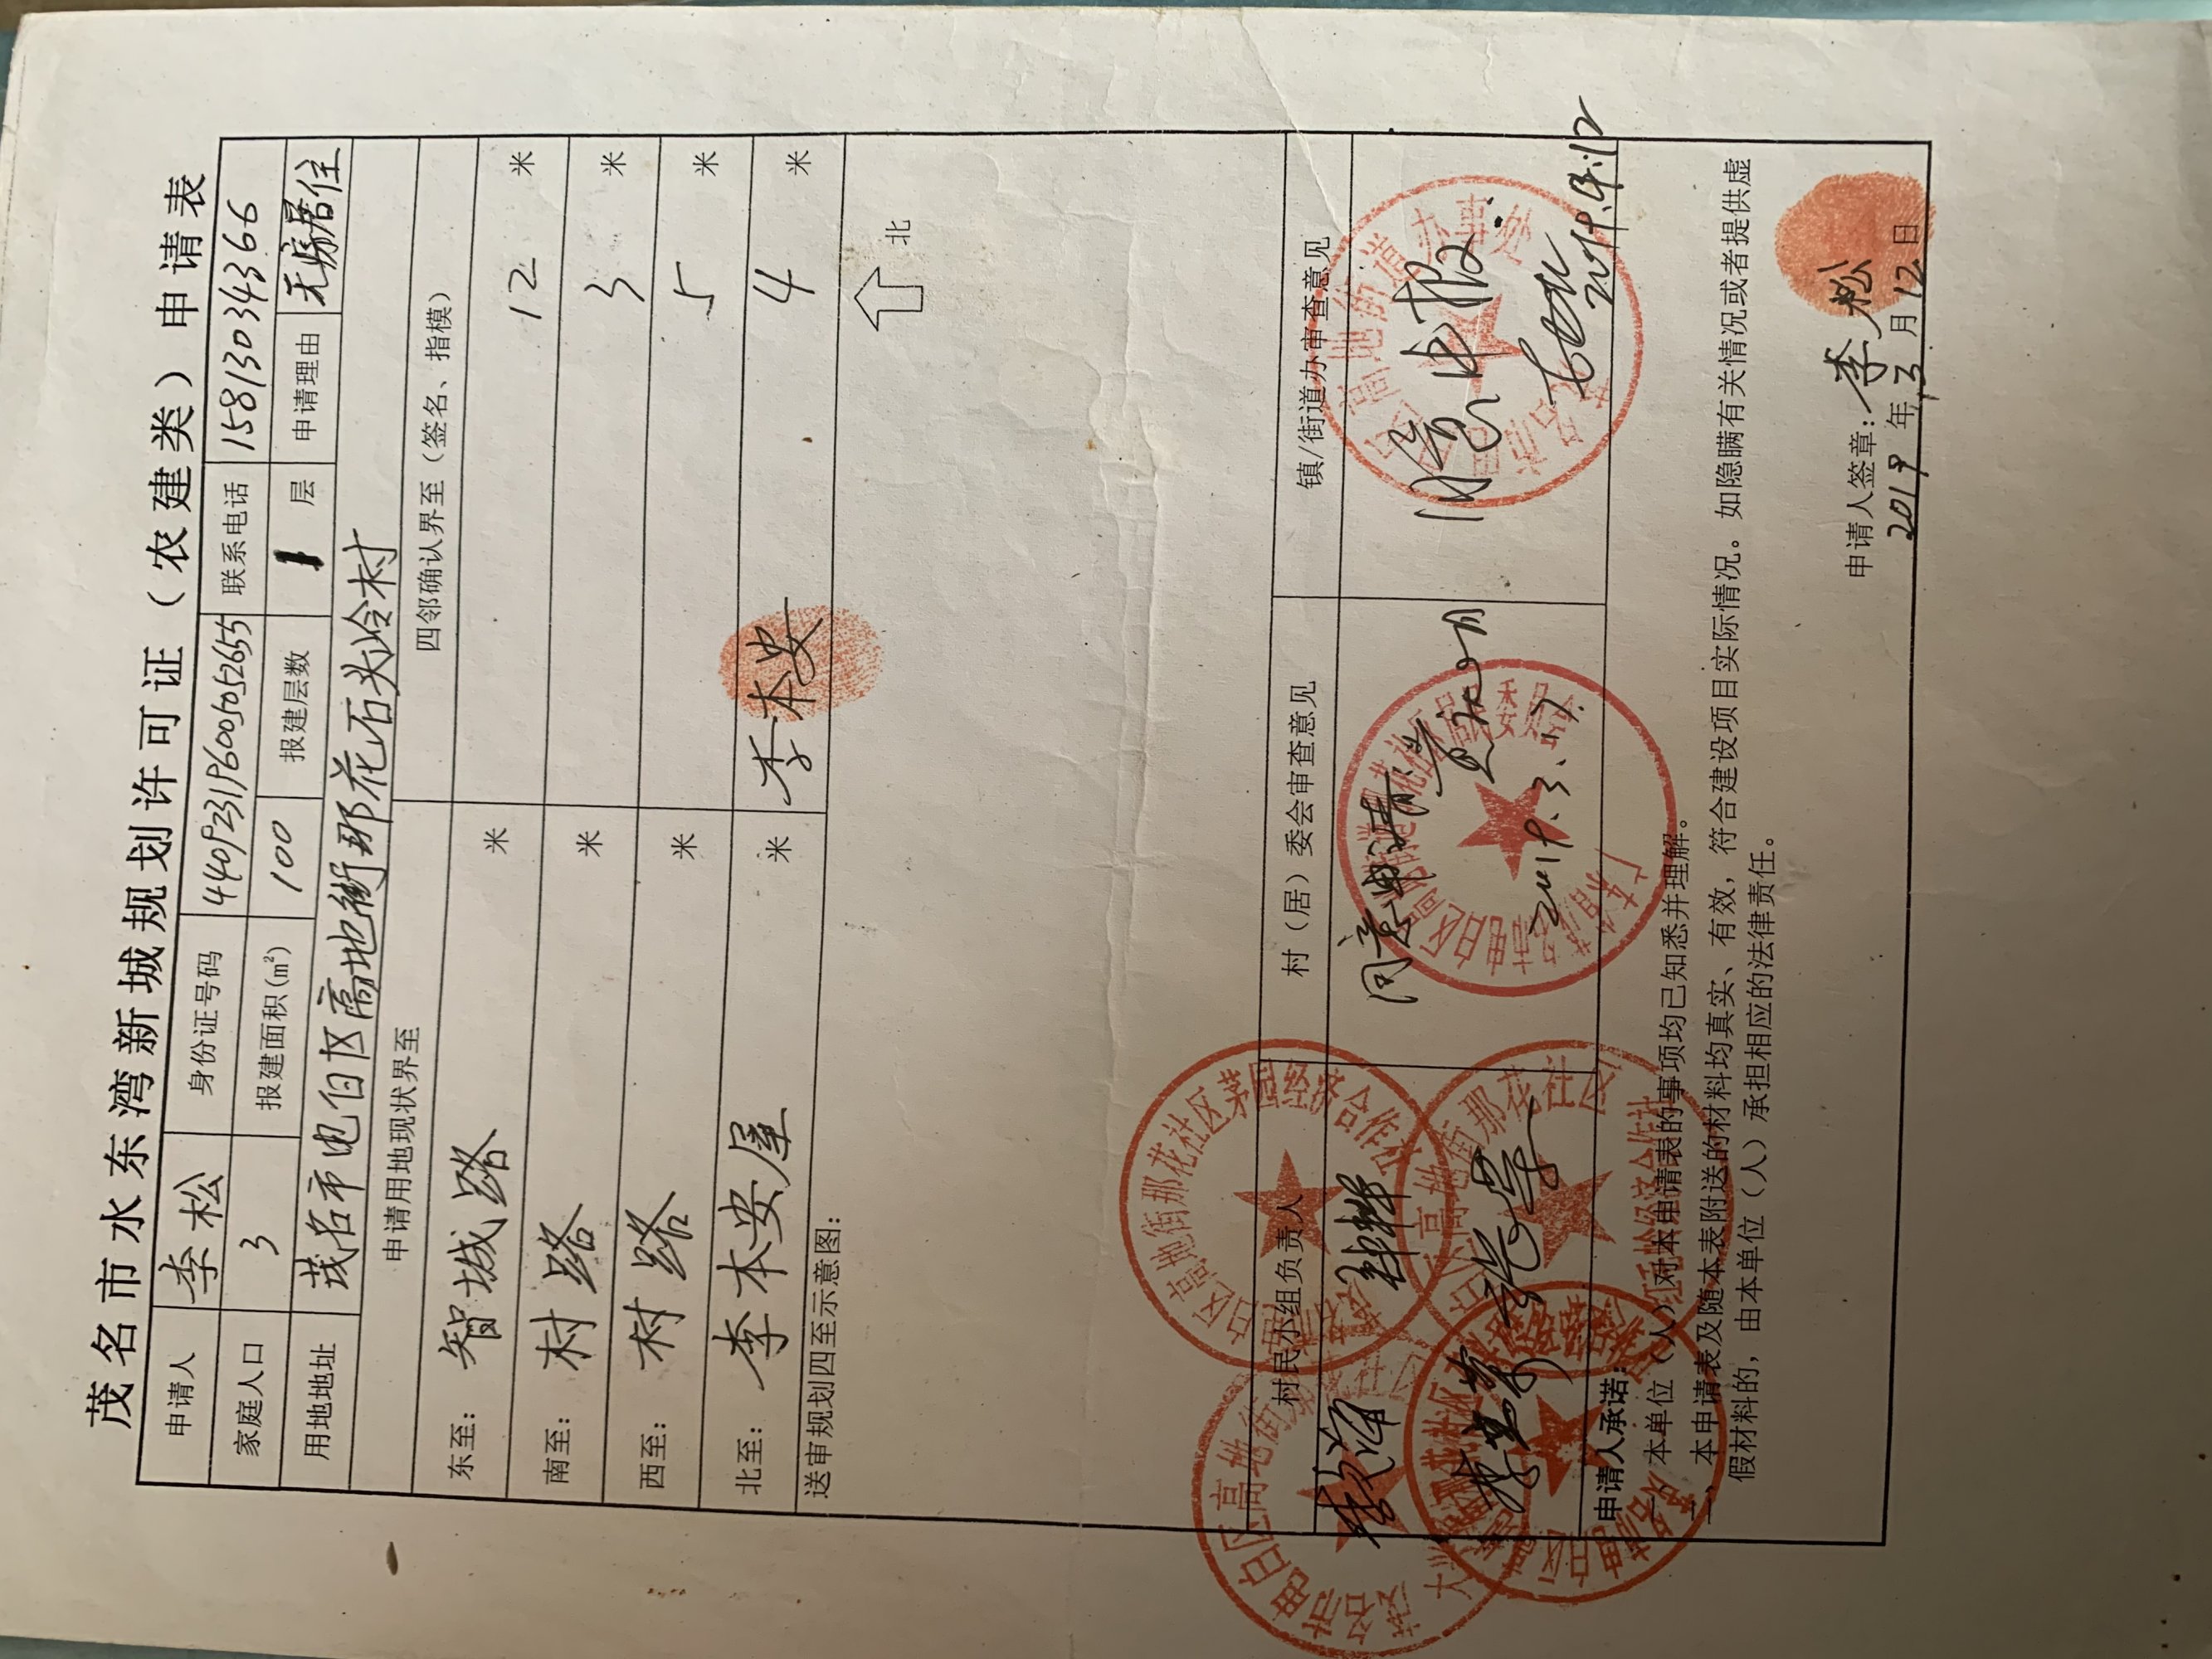 茂名市水东湾新城规划许可证（农建类）申请表
申请人 李松 身份证号码 联系电话 15813034366
家庭人口 3 报建面积(㎡) 100 报建层数 1 层 申请理由 无房居住
用地地址 茂名市电白区高地街那花石头岭村
申请用地现状界至 四邻确认界至（签名、指模）
东至：智城路 米 12 米
南至：村路 米 3 米
西至：村路 米 5 米
北至：李本安屋 米 李本安 4 米
送审规划四至示意图：
北
村民小组负责人 村（居）委会审查意见 镇/街道办审查意见
同意申请 同意申报
2019.3.17. 2019.4.12
申请人承诺：
一、本单位（人）对本申请表的事项均已知悉并理解。
二、本申请表及随本表附送的材料均真实、有效，符合建设项目实际情况。如隐瞒有关情况或者提供虚
假材料的，由本单位（人）承担相应的法律责任。
申请人签章：李松
2019年3月12日